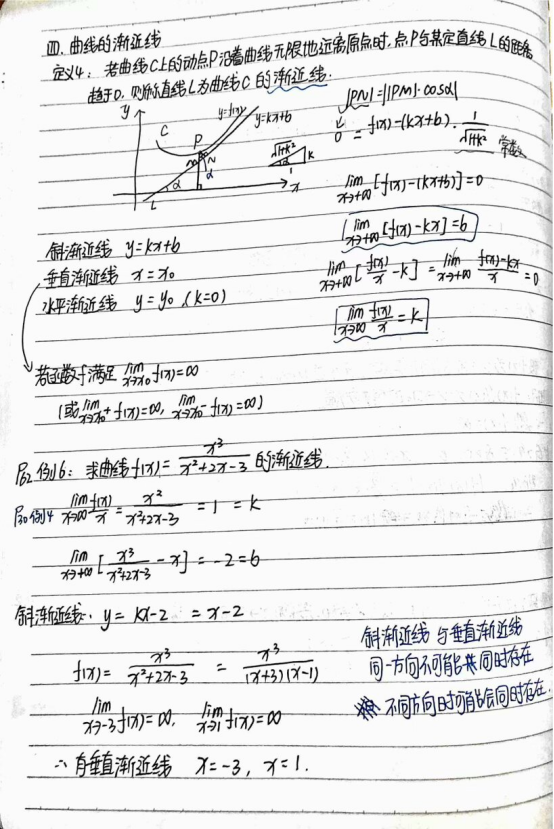 四、曲线的渐近线
定义4：若曲线C上的动点P沿着曲线无限地远离原点时，点P与某定直线L的距离
趋于0，则称直线L为曲线C的渐近线.
y
y=f(x)
y=kx+b
C
P
M
N
α
α
L
x
√1+k²
k
α
1
|PN|=|PM|·cosα|
0 = f(x)-(kx+b)·1/√1+k² 常数
lim x→+∞ [f(x)-(kx+b)]=0
lim x→+∞ [f(x)-kx]=b
lim x→+∞ [f(x)/x - k] = lim x→+∞ f(x)-kx/x = 0
lim x→+∞ f(x)/x = k
斜渐近线 y=kx+b
垂直渐近线 x=x₀
水平渐近线 y=y₀ (k=0)
若函数f满足 lim x→x₀ f(x)=∞
(或 lim x→x₀⁺ f(x)=∞, lim x→x₀⁻ f(x)=∞)
P62 例6：求曲线f(x)= x³/x²+2x-3 的渐近线.
例4 lim x→∞ f(x)/x = x²/x²+2x-3 = 1 = k
lim x→+∞ [x³/x²+2x-3 - x] = -2 = b
斜渐近线: y= kx-2 = x-2
f(x)= x³/x²+2x-3 = x³/(x+3)(x-1)
lim x→-3 f(x)=∞, lim x→1 f(x)=∞
∴有垂直渐近线 x=-3, x=1.
斜渐近线与垂直渐近线
同一方向不可能共同时存在
不同方向时可能会同时存在.